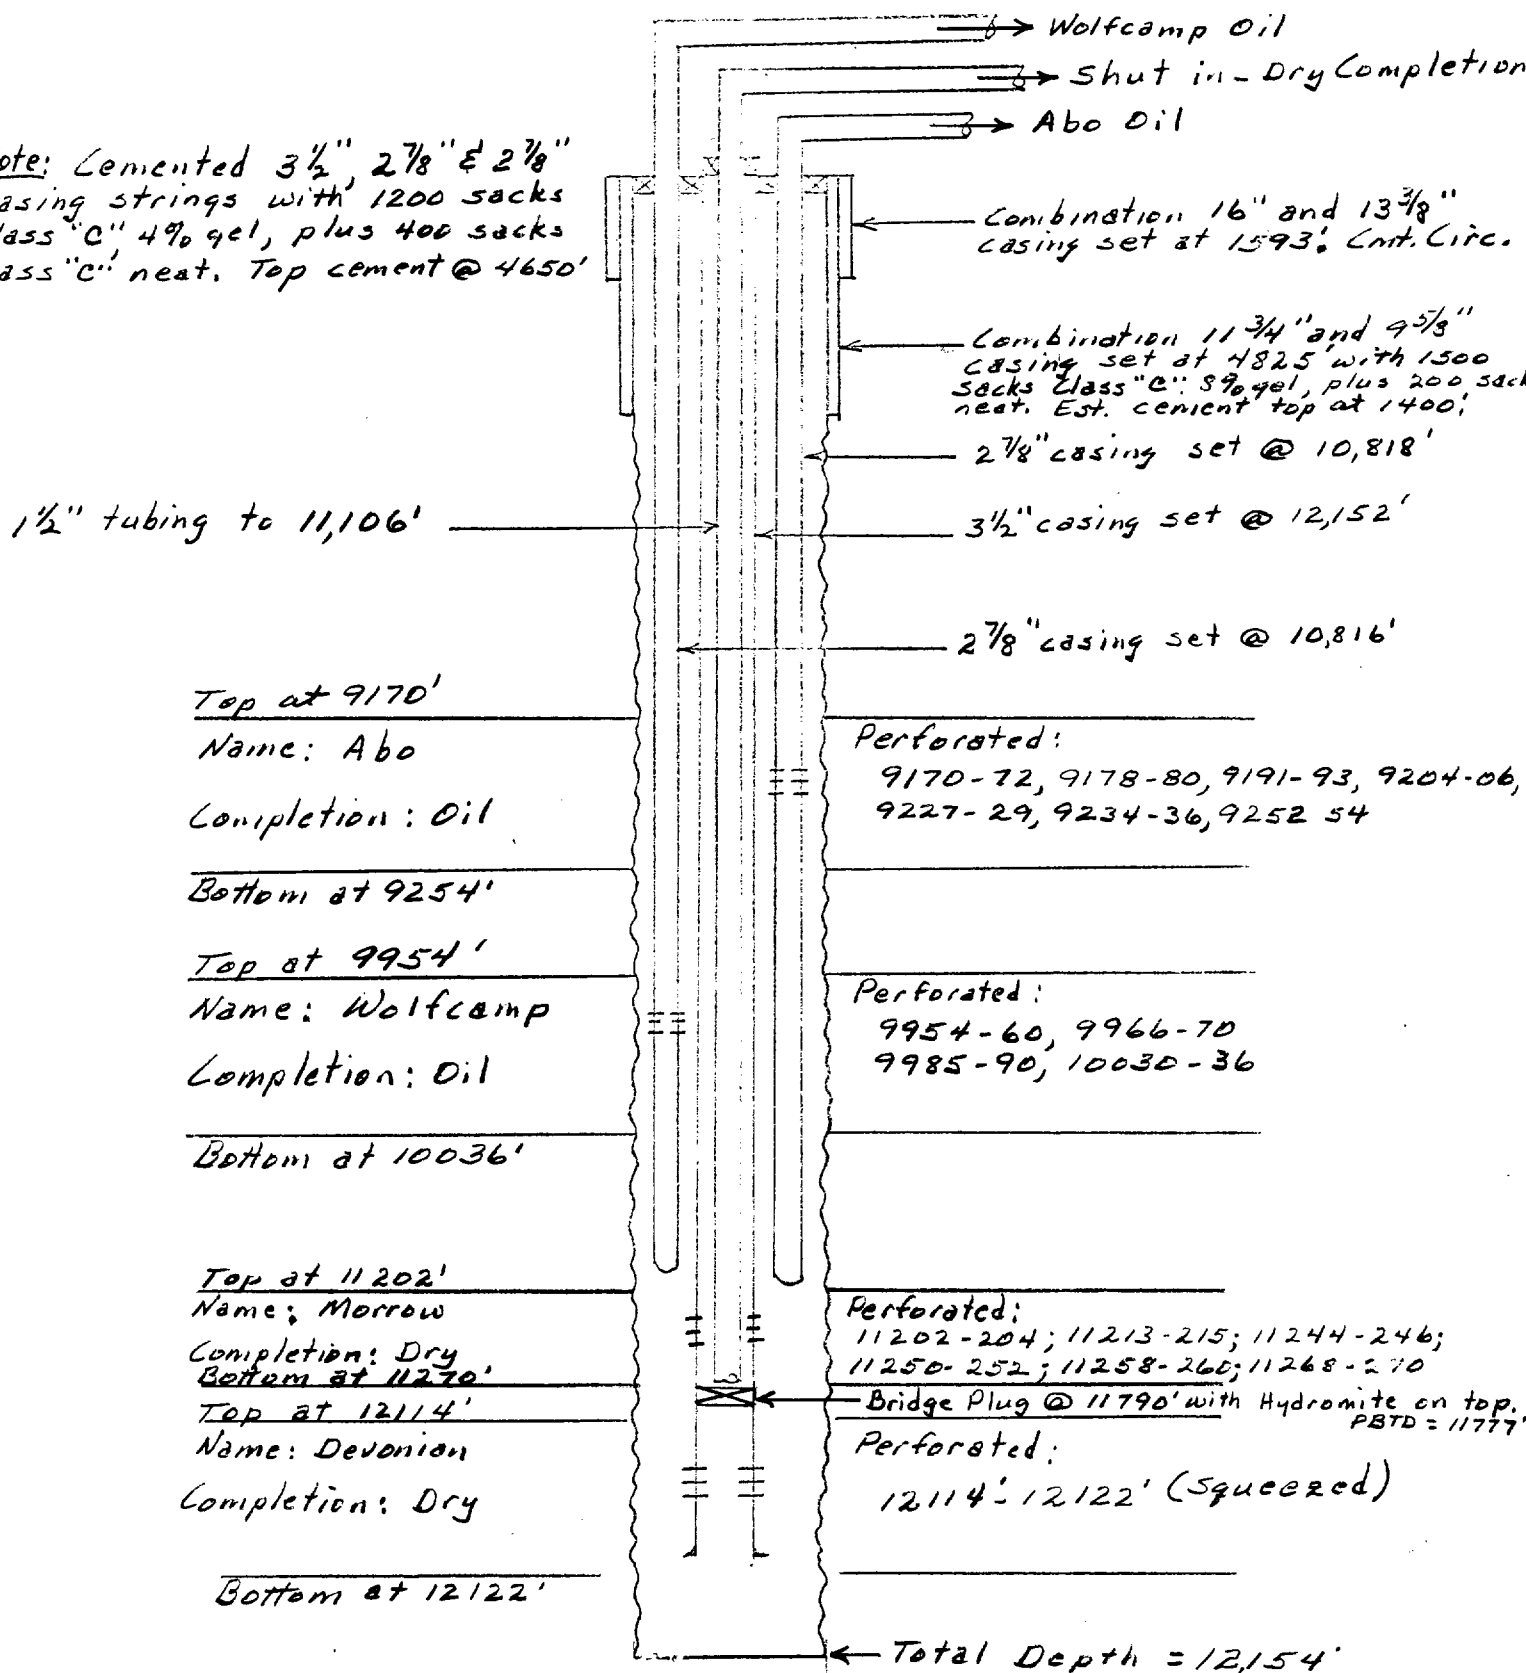 Wolfcamp Oil
Shut in - Dry Completion
Abo Oil
ote: Cemented 3 1/2", 2 7/8" & 2 7/8"
asing strings with 1200 sacks
lass "C" 4% gel, plus 400 sacks
ass "C" neat. Top cement @ 4650'
Combination 16" and 13 3/8"
casing set at 1593'. Cmt. Circ.
Combination 11 3/4" and 9 5/8"
casing set at 4825' with 1500
sacks Class "C" 8% gel, plus 200 sack
neat. Est. cement top at 1400'.
2 7/8" casing set @ 10,818'
1 1/2" tubing to 11,106'
3 1/2" casing set @ 12,152'
2 7/8" casing set @ 10,816'
Top at 9170'
Name: Abo
Completion: Oil
Bottom at 9254'
Perforated:
9170-72, 9178-80, 9191-93, 9204-06,
9227-29, 9234-36, 9252 54
Top at 9954'
Name: Wolfcamp
Completion: Oil
Bottom at 10036'
Perforated:
9954-60, 9966-70
9985-90, 10030-36
Top at 11202'
Name: Morrow
Completion: Dry
Bottom at 11270'
Perforated:
11202-204; 11213-215; 11244-246;
11250-252; 11258-260; 11268-270
Bridge Plug @ 11790' with Hydromite on top.
PBTD = 11777'
Top at 12114'
Name: Devonian
Completion: Dry
Bottom at 12122'
Perforated:
12114'-12122' (Squeezed)
Total Depth = 12,154'